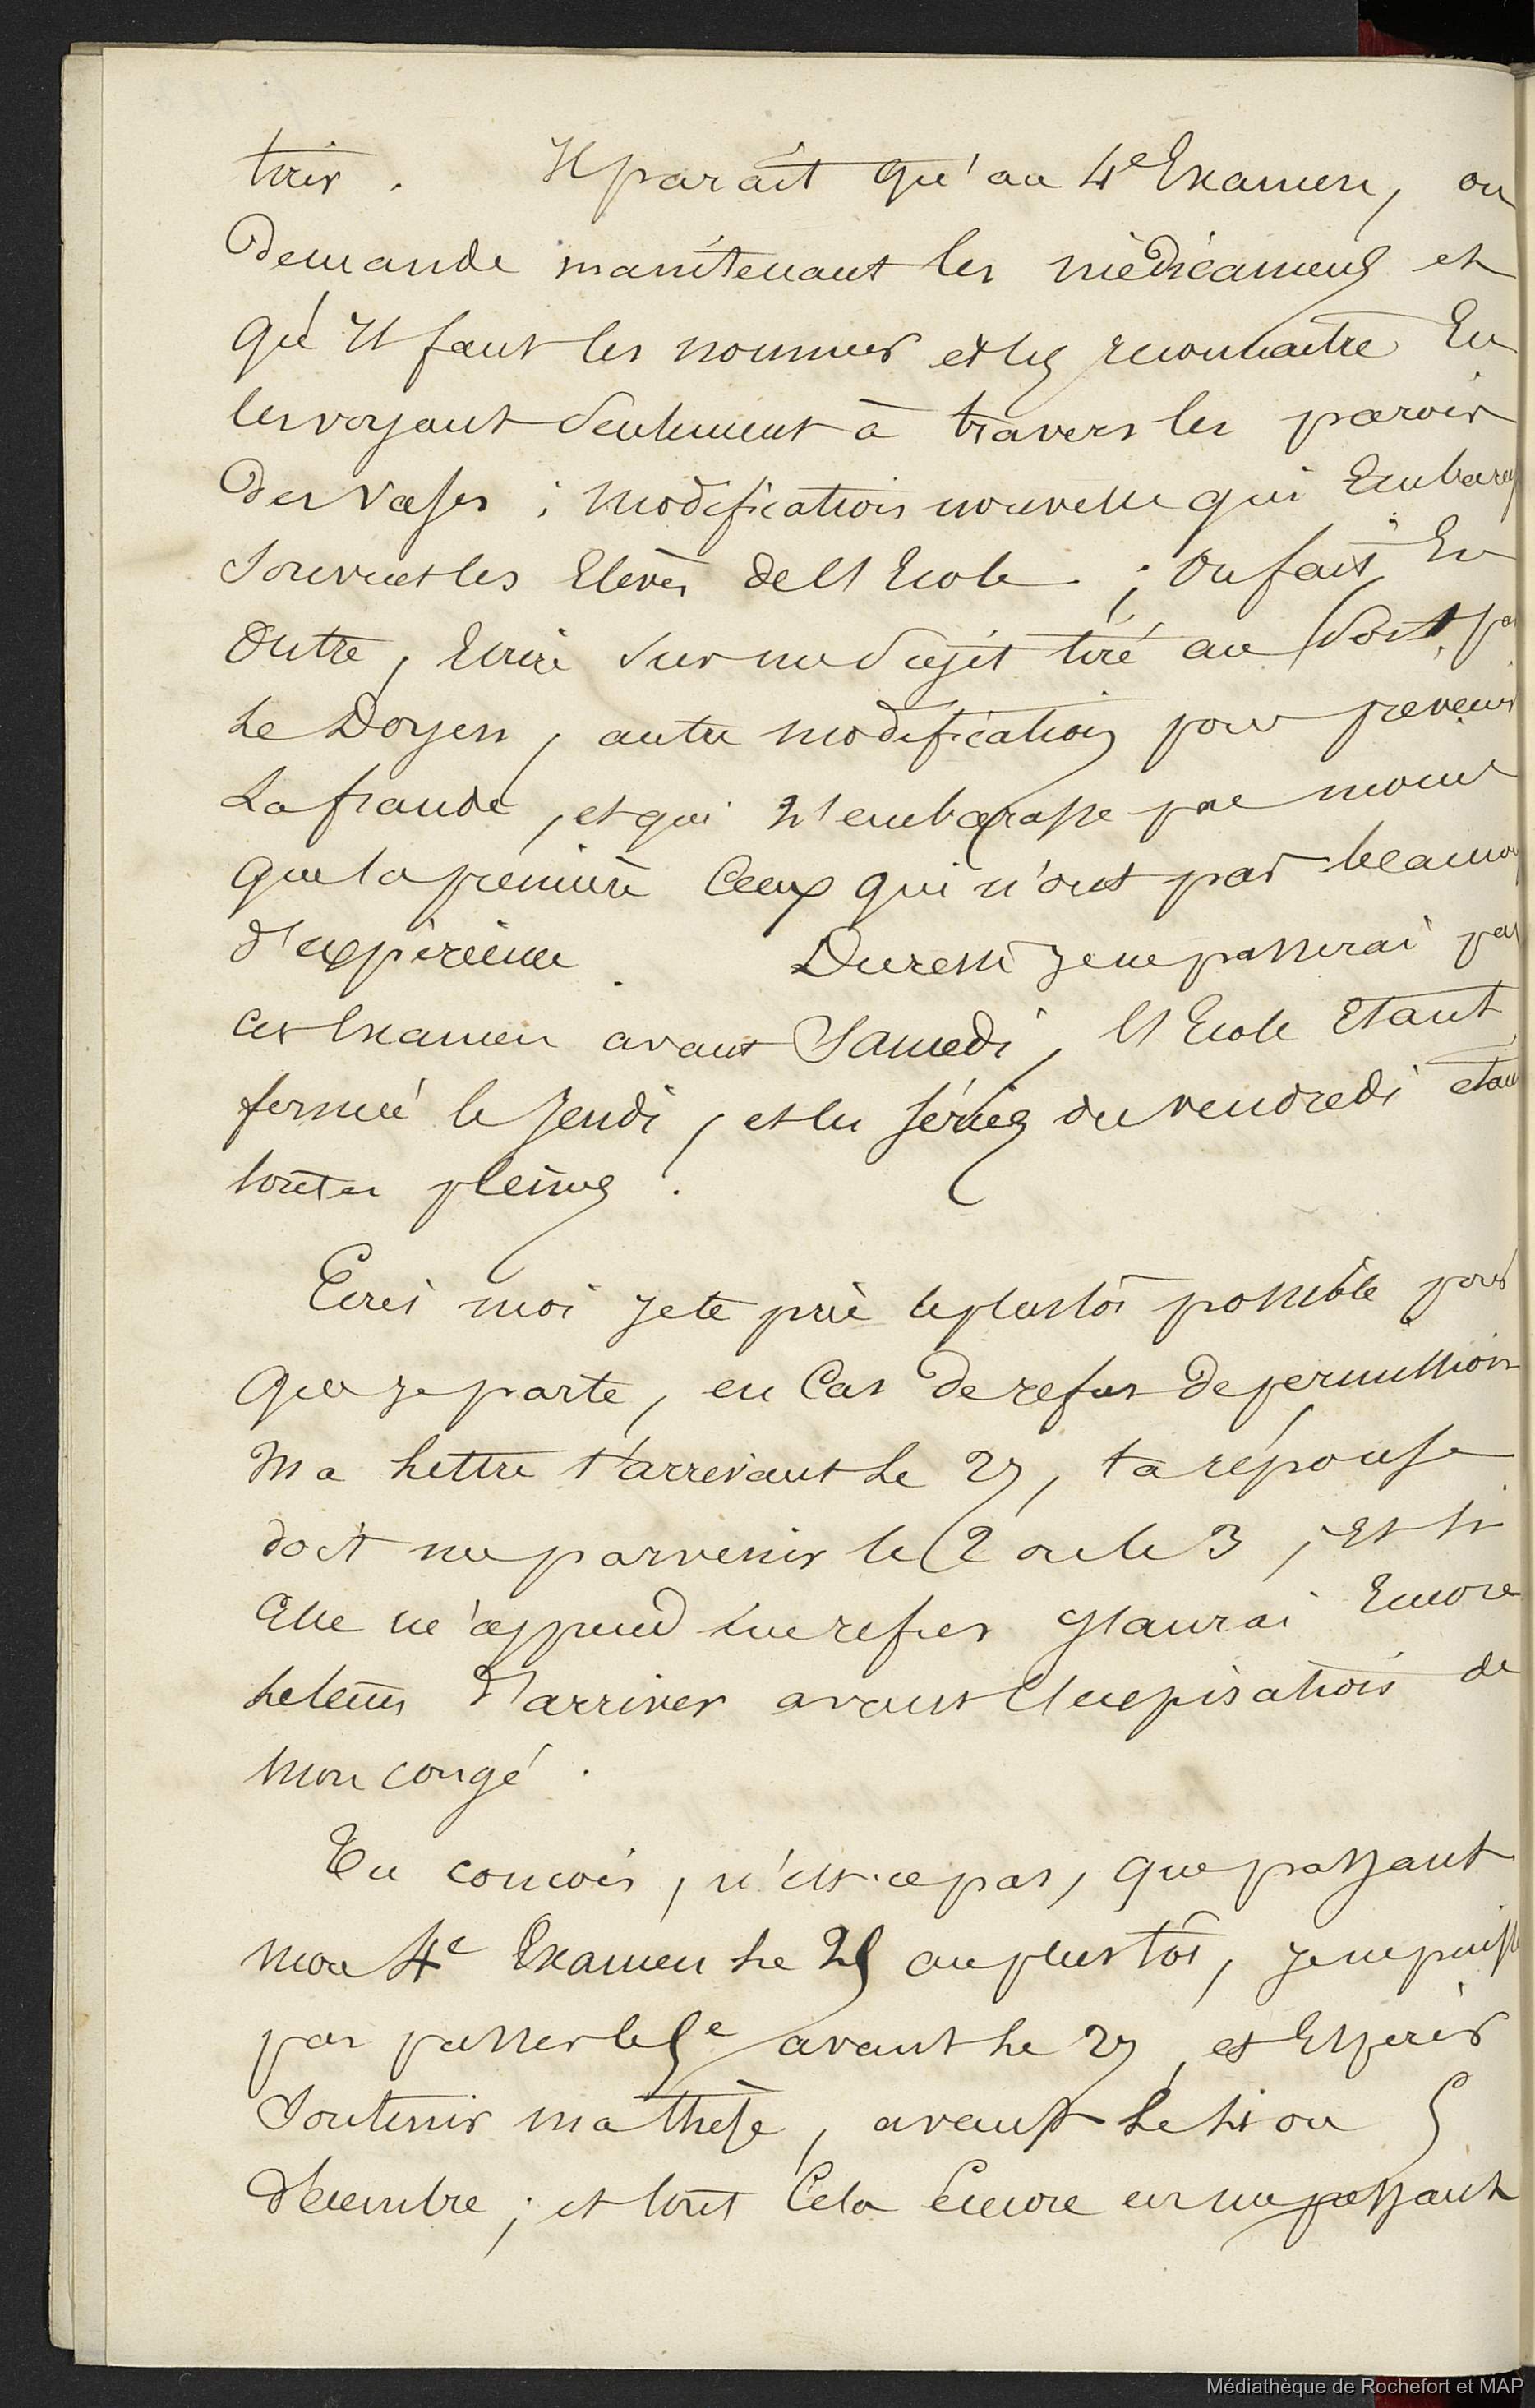 tirer. Il parait qu'au 4e Examen, on
Demande maintenant les médicamens et
qu'il faut les nommer et les reconnaitre En
les voyant Seulement à travers les parois
Des Vases; modification nouvelle qui Embarass
Souvent les Elèves de l'Ecole; On fait, En
Outre, Ecrire Sur un Sujet tiré au Sort par
Le Doyen, autre modification pour prevenir
La fraude, et qui n'embarasse pas moins
que la première Ceux qui n'ont pas beaucou
d'expérience. Du reste je ne passerai pas
cet Examen avant Samedi, l'Ecole Etant
fermée le Jeudi, et les séries du vendredi étan
toutes pleines.
Ecris moi je te prie le plustôt possible pour
que je parte, en Cas de refus de permission
Ma Lettre t'arrivant Le 27, ta réponse
doit me parvenir le 2 ou le 3, Et si
Elle m'apprend un refus J'aurai Encore
Le tems d'arriver avant l'expiration de
Mon congé.
Tu concois, n'est-ce pas, que passant
mon 4e Examen Le 25 au plus tôt, je ne puiss
pas passer le 5e avant Le 27, et Espérer
Soutenir ma thèse, avant Le 1er ou 5
Décembre; et tout Cela Encore en me passant
Médiathèque de Rochefort et MAP